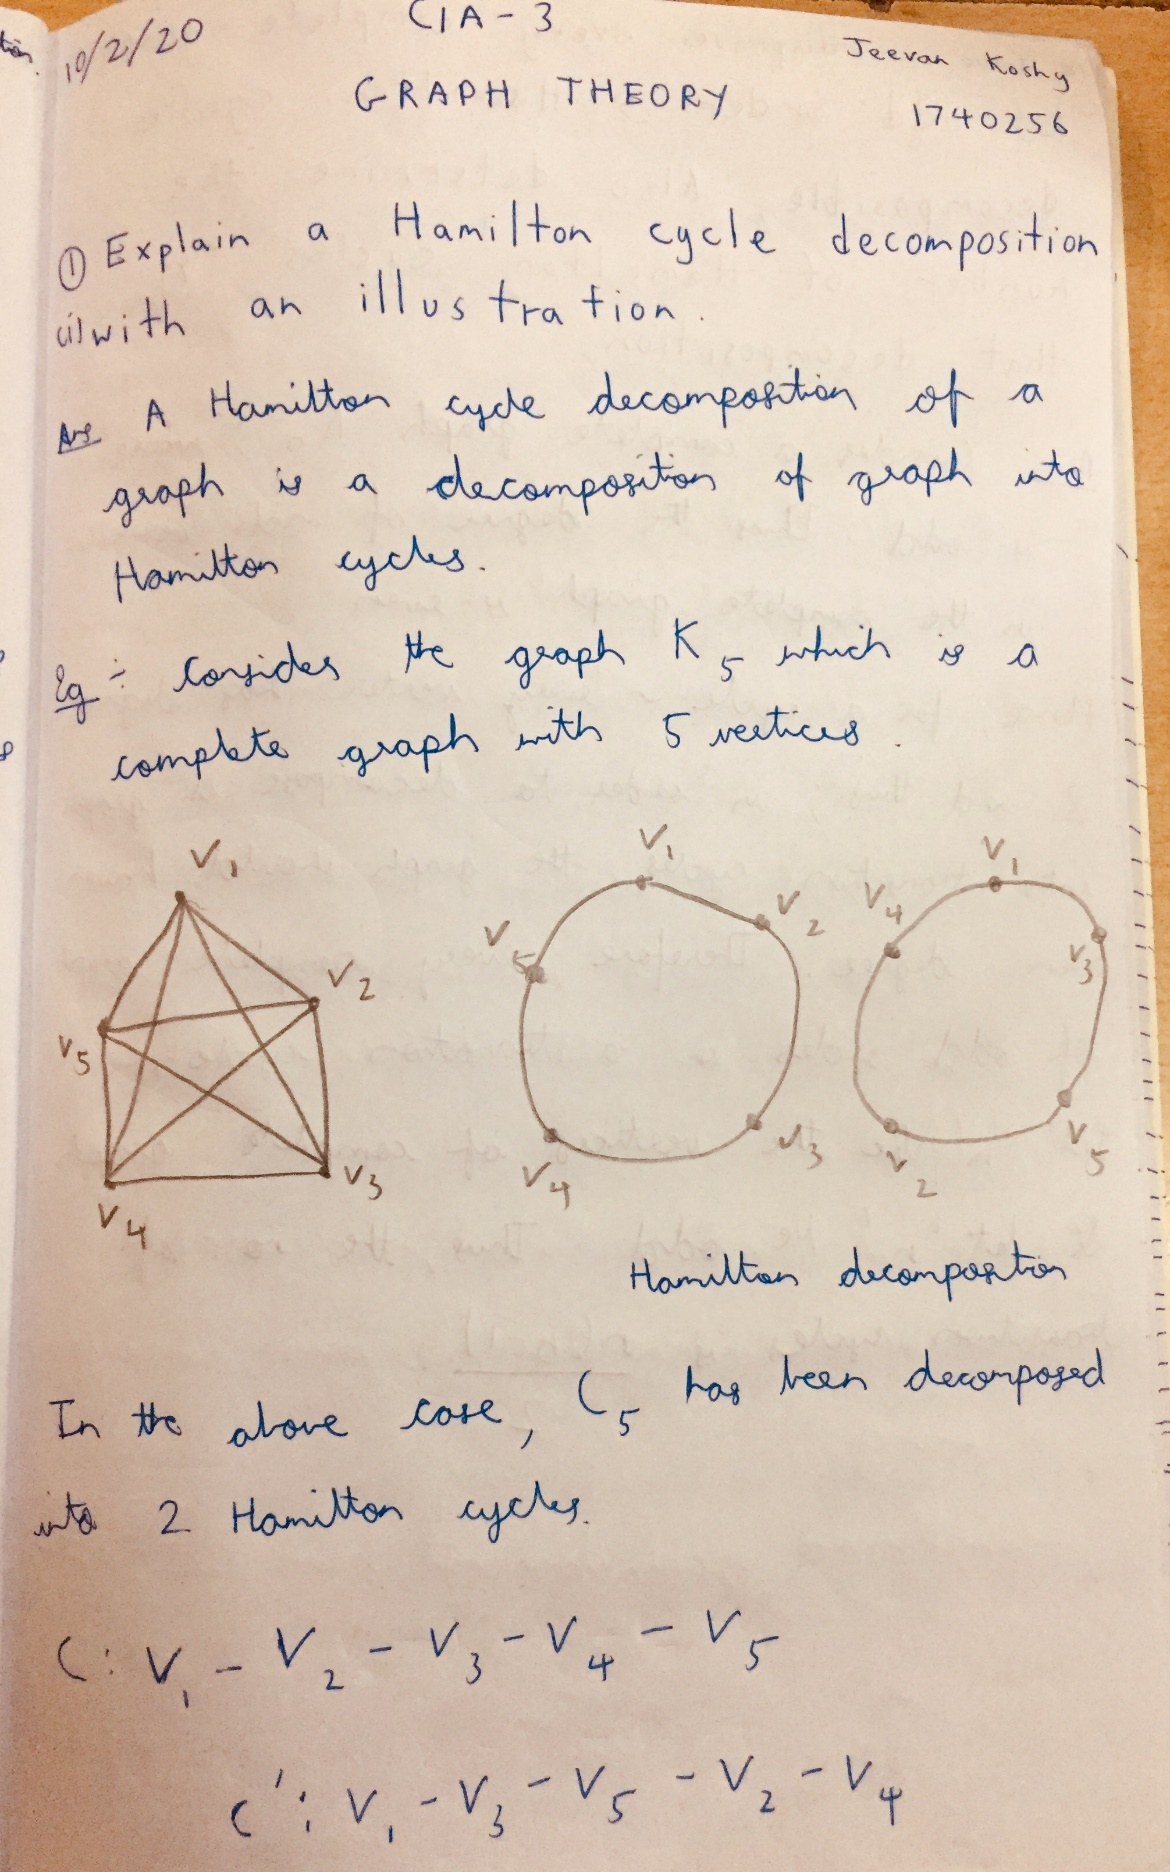 10/2/20
CIA - 3
Jeevan Koshy
1740256
GRAPH THEORY
① Explain a Hamilton cycle decomposition
(i) with an illustration.
Ans A Hamilton cycle decomposition of a
graph is a decomposition of graph into
Hamilton cycles.
Eg :- Consider the graph K5 which is a
complete graph with 5 vertices.
V1
V2
V5
V3
V4
V1
V2
V5
V3
V4
V1
V4
V3
V5
V2
Hamilton decomposition
In the above case, C5 has been decomposed
into 2 Hamilton cycles.
C: V1 - V2 - V3 - V4 - V5
C': V1 - V3 - V5 - V2 - V4